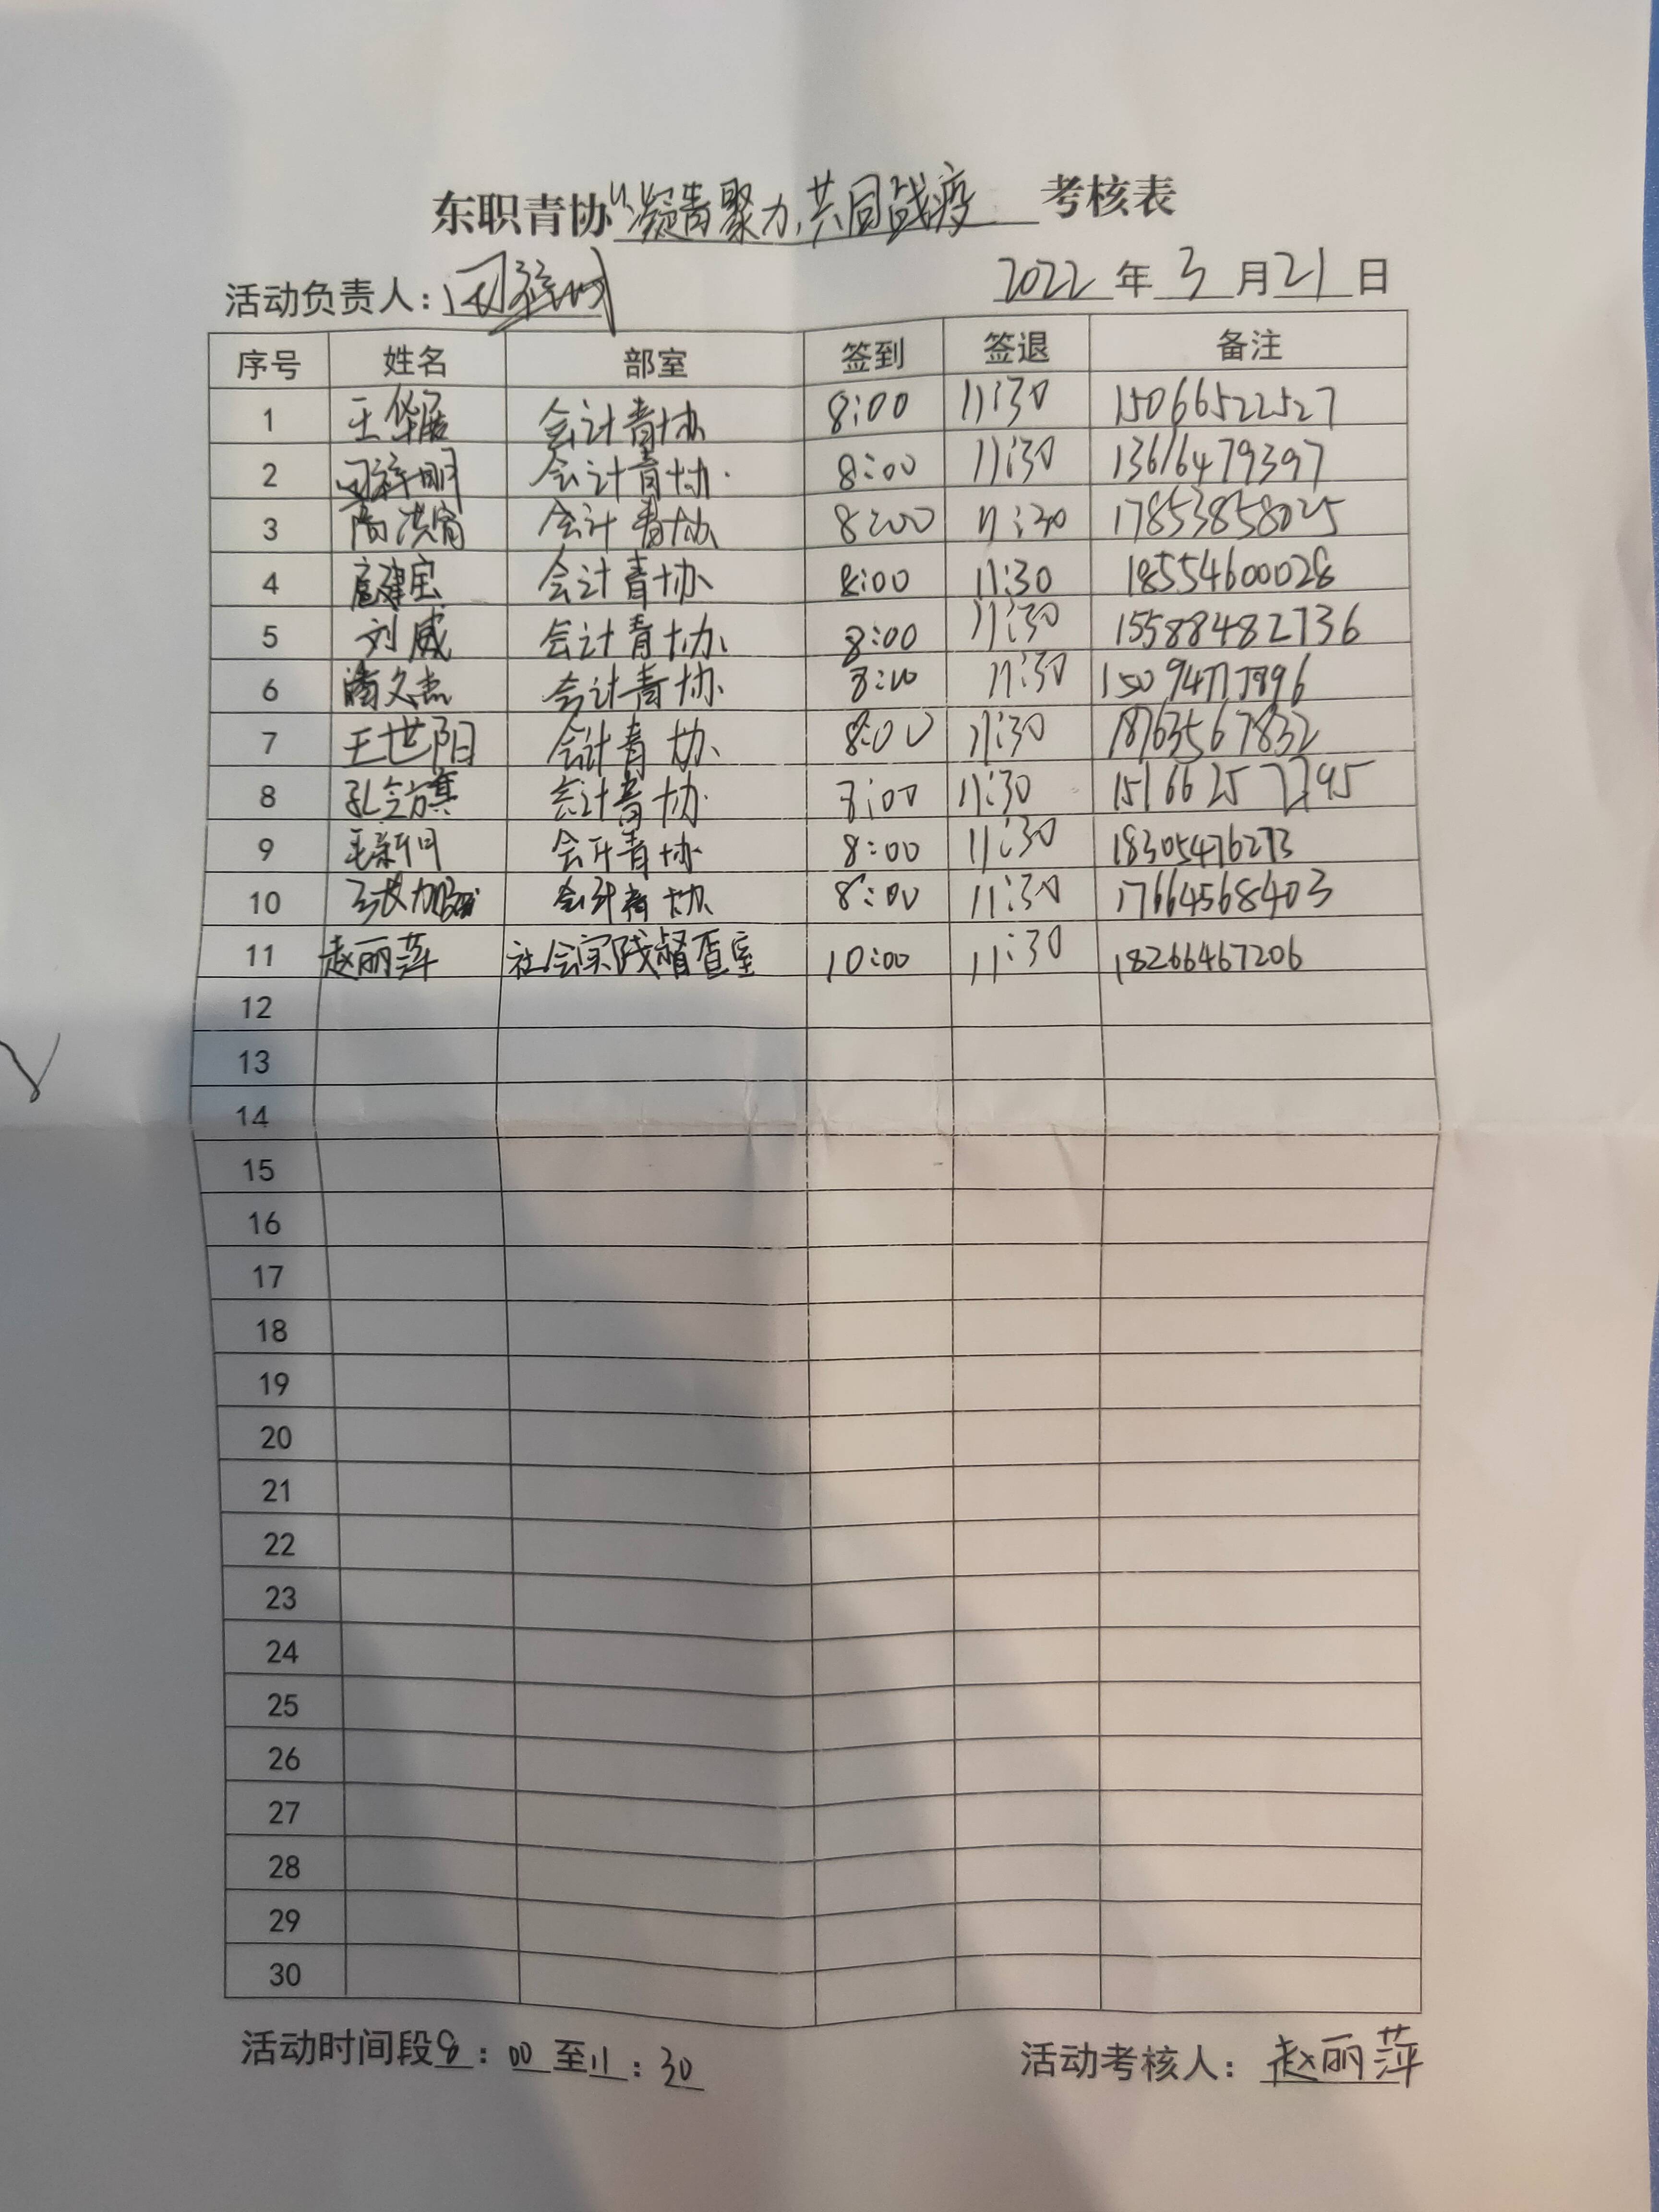 东职青协“凝青聚力,共同战疫 考核表
活动负责人: 2022 年 3 月 21 日
序号 姓名 部室 签到 签退 备注
1 王华展 会计青协 8:00 11:30 15066522527
2 祥明 会计青协 8:00 11:30 13616479397
3 尚洪宵 会计青协 8:00 11:30 17853858025
4 扈建宝 会计青协 8:00 11:30 18554600028
5 刘威 会计青协 8:00 11:30 15588482736
6 潘文杰 会计青协 8:00 11:30
7 王世阳 会计青协 8:00 11:30 18763567832
8 孔令方 会计青协 8:00 11:30 15166257795
9 会计青协 8:00 11:30 18305476273
10 会计青协 8:00 11:30 17664568403
11 赵丽萍 社会实践督查室 10:00 11:30 18266467206
12
13
14
15
16
17
18
19
20
21
22
23
24
25
26
27
28
29
30
活动时间段8:00至11:30 活动考核人:赵丽萍